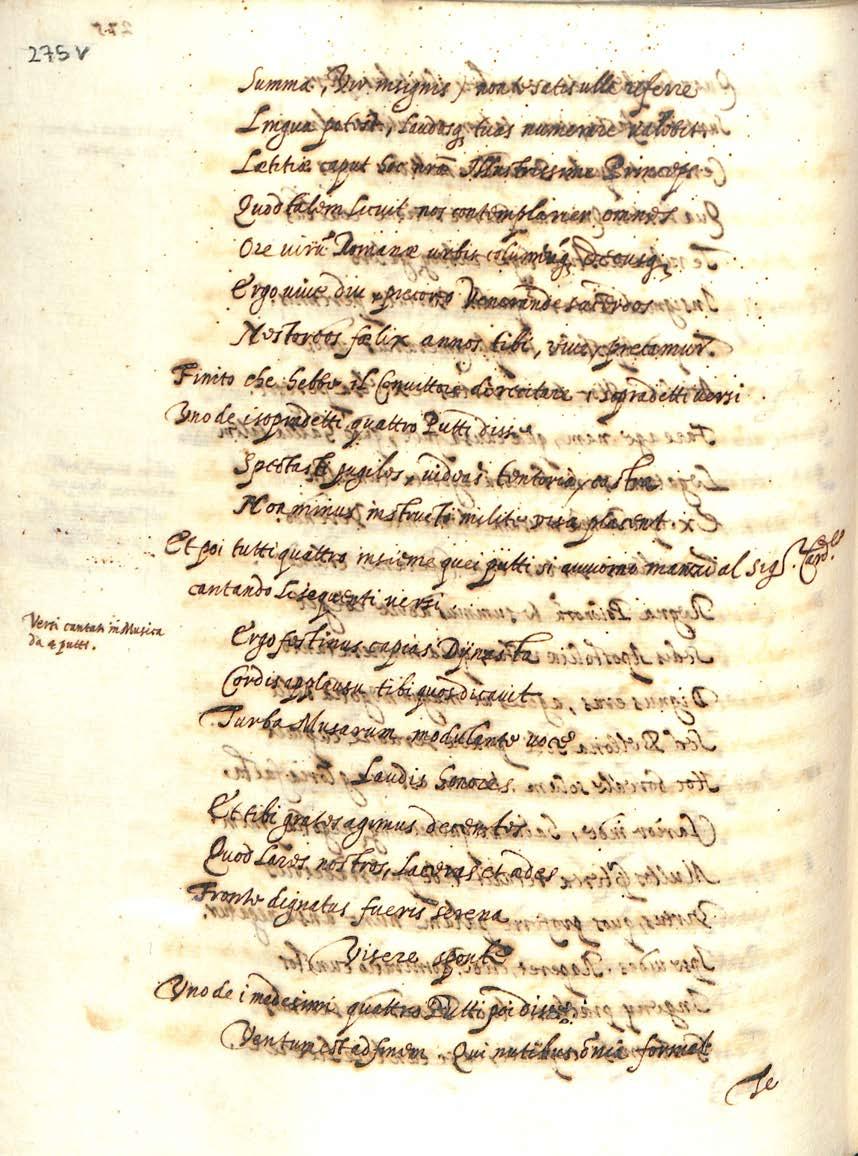 275 v
Summa, Vir insignis, non te satis ulla referre
Lingua potest, laudesq; tuas numerare valebit.
Lætitiæ caput hoc nr̃æ Illustrissime Princeps
Quod talem licuit nos contemplarier omnes
Ore virũ Romanæ urbis columenq; Decusq;
Ergo vive diu precor Venerande sacerdos
Nestoreos fælix annos tibi, vive precamur.
Finito che hebbe il Convittore di recitare i sopradetti versi
Uno de i sopradetti quattro Putti disse
Spectasti pugiles, videas tentoria, castra
Non minus instructi milite visa placent.
Et poi tutti quattro insieme quei putti si avvorno inanzi al Sigr. Card.le
cantando li sequenti versi
Versi cantati in Musica
da 4 putti.
Ergo festinus capias Dynasta
Cordis applausu tibi quos dicavit
Turba Musarum modulante voce
Laudis honores.
Et tibi grates agimus decentes
Quod Lares nostros, Laceras et ædes
Fronte dignatus fueris serena
Visere sponte
Uno de i medesimi quattro Putti poi disse
Ventum est ad finem. Qui nutibus õnia format
Te